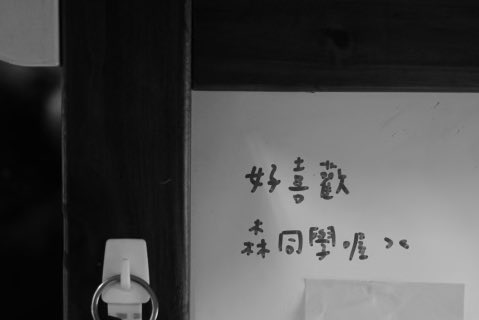 好喜歡
森同學喔><